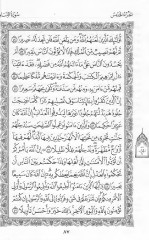 الجزء الخامس سورة النساء
أُولَٰئِكَ الَّذِينَ لَعَنَهُمُ اللَّهُ وَمَن يَلْعَنِ اللَّهُ فَلَن تَجِدَ لَهُ نَصِيرًا ٥٢
أَمْ لَهُمْ نَصِيبٌ مِّنَ الْمُلْكِ فَإِذًا لَّا يُؤْتُونَ النَّاسَ نَقِيرًا ٥٣
أَمْ يَحْسُدُونَ النَّاسَ عَلَىٰ مَا آتَاهُمُ اللَّهُ مِن فَضْلِهِ فَقَدْ آتَيْنَا
آلَ إِبْرَاهِيمَ الْكِتَابَ وَالْحِكْمَةَ وَآتَيْنَاهُم مُّلْكًا عَظِيمًا ٥٤
فَمِنْهُم مَّنْ آمَنَ بِهِ وَمِنْهُم مَّن صَدَّ عَنْهُ وَكَفَىٰ بِجَهَنَّمَ سَعِيرًا ٥٥
إِنَّ الَّذِينَ كَفَرُوا بِآيَاتِنَا سَوْفَ نُصْلِيهِمْ نَارًا كُلَّمَا نَضِجَتْ
جُلُودُهُم بَدَّلْنَاهُمْ جُلُودًا غَيْرَهَا لِيَذُوقُوا الْعَذَابَ إِنَّ اللَّهَ
كَانَ عَزِيزًا حَكِيمًا ٥٦ وَالَّذِينَ آمَنُوا وَعَمِلُوا الصَّالِحَاتِ
سَنُدْخِلُهُمْ جَنَّاتٍ تَجْرِي مِن تَحْتِهَا الْأَنْهَارُ خَالِدِينَ فِيهَا أَبَدًا
لَّهُمْ فِيهَا أَزْوَاجٌ مُّطَهَّرَةٌ وَنُدْخِلُهُمْ ظِلًّا ظَلِيلًا ٥٧ إِنَّ اللَّهَ
يَأْمُرُكُمْ أَن تُؤَدُّوا الْأَمَانَاتِ إِلَىٰ أَهْلِهَا وَإِذَا حَكَمْتُم بَيْنَ
النَّاسِ أَن تَحْكُمُوا بِالْعَدْلِ إِنَّ اللَّهَ نِعِمَّا يَعِظُكُم بِهِ إِنَّ اللَّهَ كَانَ
سَمِيعًا بَصِيرًا ٥٨ يَا أَيُّهَا الَّذِينَ آمَنُوا أَطِيعُوا اللَّهَ وَأَطِيعُوا
الرَّسُولَ وَأُولِي الْأَمْرِ مِنكُمْ فَإِن تَنَازَعْتُمْ فِي شَيْءٍ فَرُدُّوهُ إِلَى اللَّهِ
وَالرَّسُولِ إِن كُنتُمْ تُؤْمِنُونَ بِاللَّهِ وَالْيَوْمِ الْآخِرِ ذَٰلِكَ خَيْرٌ وَأَحْسَنُ تَأْوِيلًا ٥٩
٨٧